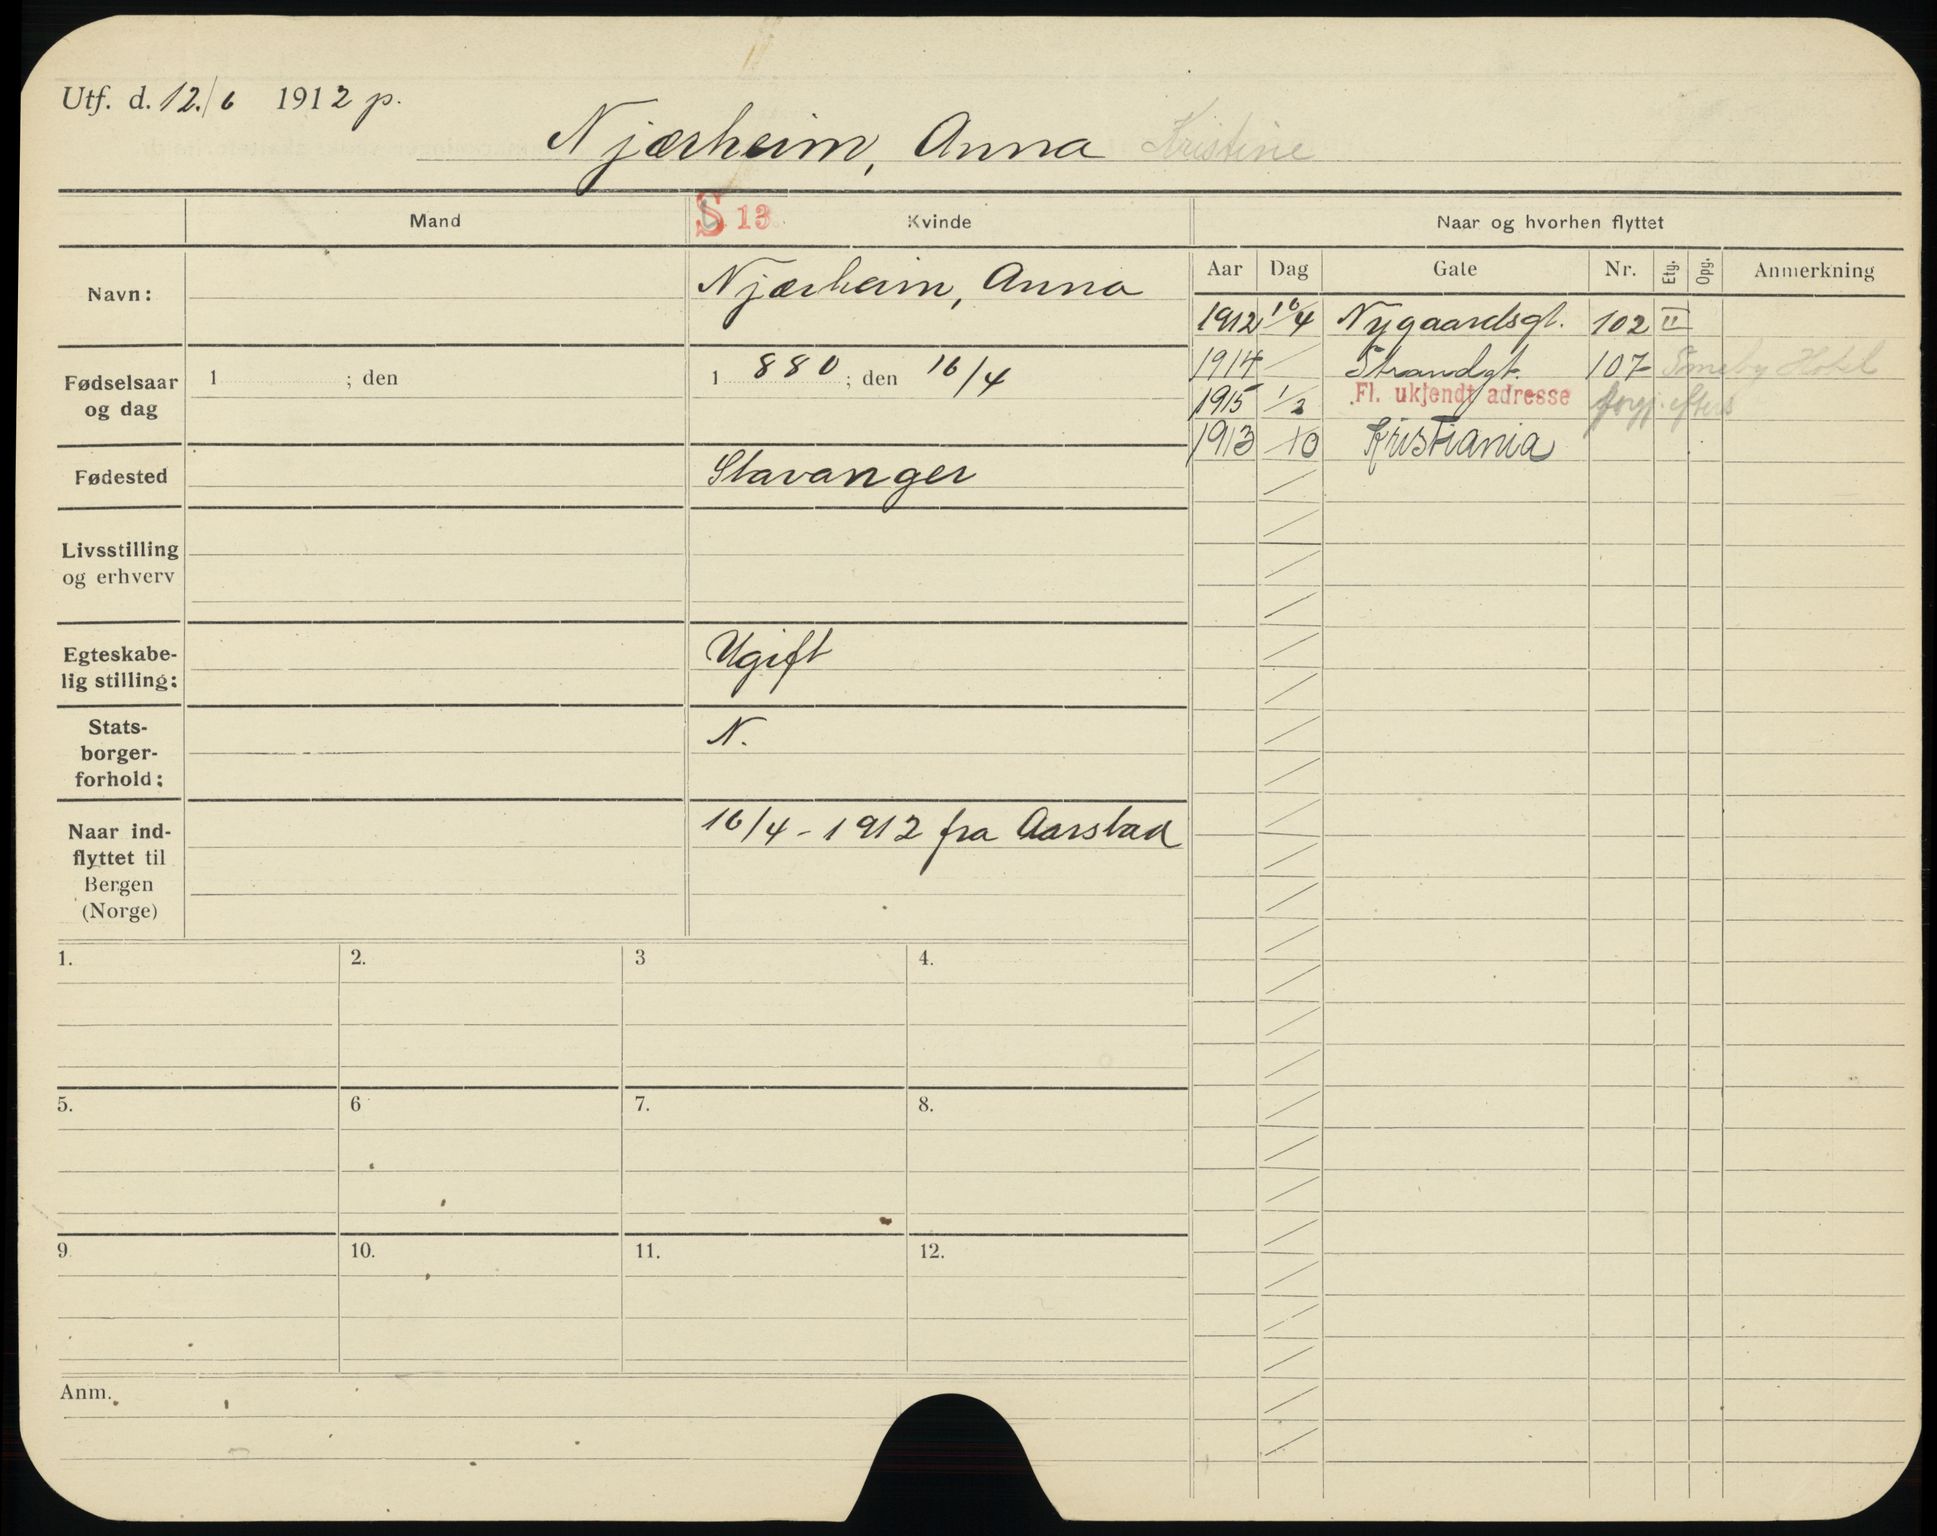 Utf. d. 12./6 1912 p.
Njærheim, Anna Kristine
Mand
S 13
Kvinde
Naar og hvorhen flyttet
Navn:
Njærheim, Anna
Aar Dag Gate Nr. Etg. Opg. Anmerkning
1912 16/4 Nygaardsgt. 102 II
1914 Strandgt. 107 Hotel
1915 1/2 Fl. ukjendt adresse forgj. efters
1913 /10 Kristiania
Fødselsaar og dag
1 ; den
1 880 ; den 16/4
Fødested
Stavanger
Livsstilling
og erhverv
Egteskabe-
lig stilling:
Ugift
Stats-
borger-
forhold:
N.
Naar ind-
flyttet til
Bergen
(Norge)
16/4 - 1912 fra Aarstad
1. 2. 3 4.
5. 6 7. 8.
9. 10. 11. 12.
Anm.